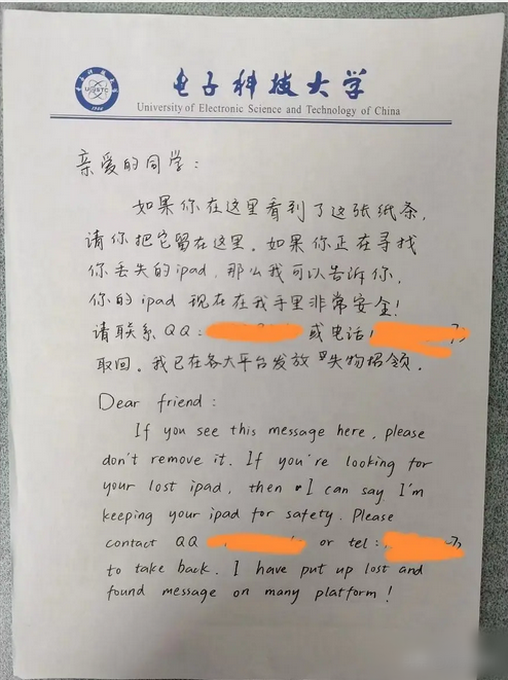 电子科技大学
University of Electronic Science and Technology of China
亲爱的同学：
如果你在这里看到了这张纸条，
请你把它留在这里。如果你正在寻找
你丢失的ipad，那么我可以告诉你，
你的ipad 现在在我手里非常安全！
请联系QQ： 或电话：
取回。我已在各大平台发放失物招领。
Dear friend :
If you see this message here, please
don't remove it. If you're looking for
your lost ipad, then I can say I'm
keeping your ipad for safety. Please
contact QQ or tel :
to take back. I have put up lost and
found message on many platform !